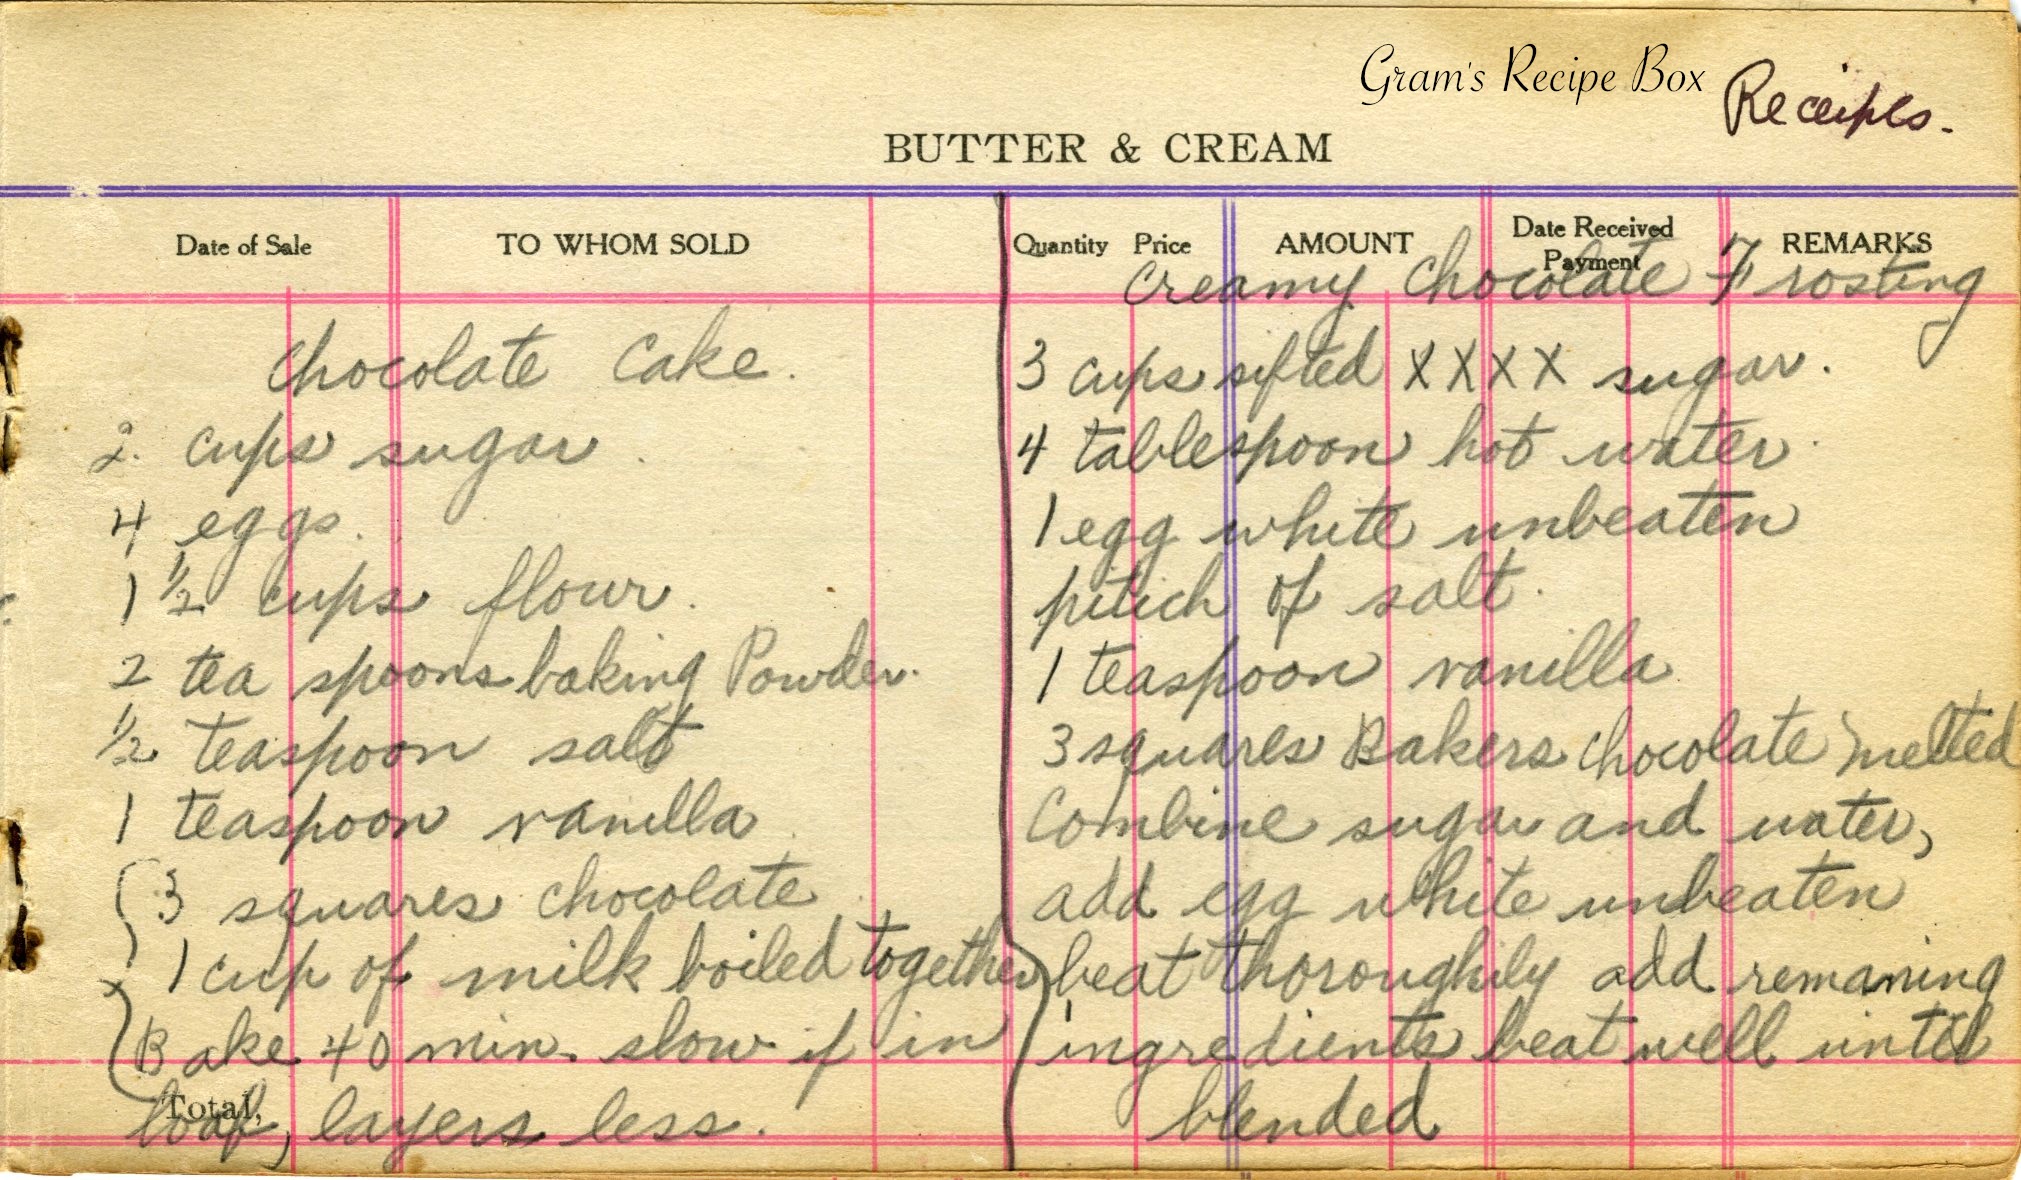 Gram's Recipe Box
Receipes.
BUTTER & CREAM
Date of Sale TO WHOM SOLD Quantity Price AMOUNT Date Received Payment REMARKS
Chocolate Cake.
2. cups sugar.
4 eggs.
1 1/2 cups flour.
2 tea spoons baking Powder.
1/2 teaspoon salt
1 teaspoon vanilla
3 squares chocolate
1 cup of milk boiled together
Bake 40 min. slow if in
Total,
loaf, layers less.
Creamy Chocolate Frosting
3 cups sifted XXXX sugar.
4 tablespoon hot water.
1 egg white unbeaten
pitich of salt.
1 teaspoon vanilla
3 squares Bakers chocolate melted
Combine sugar and water,
add egg white unbeaten
beat thoroughily add remaning
ingredients beat well until
blended